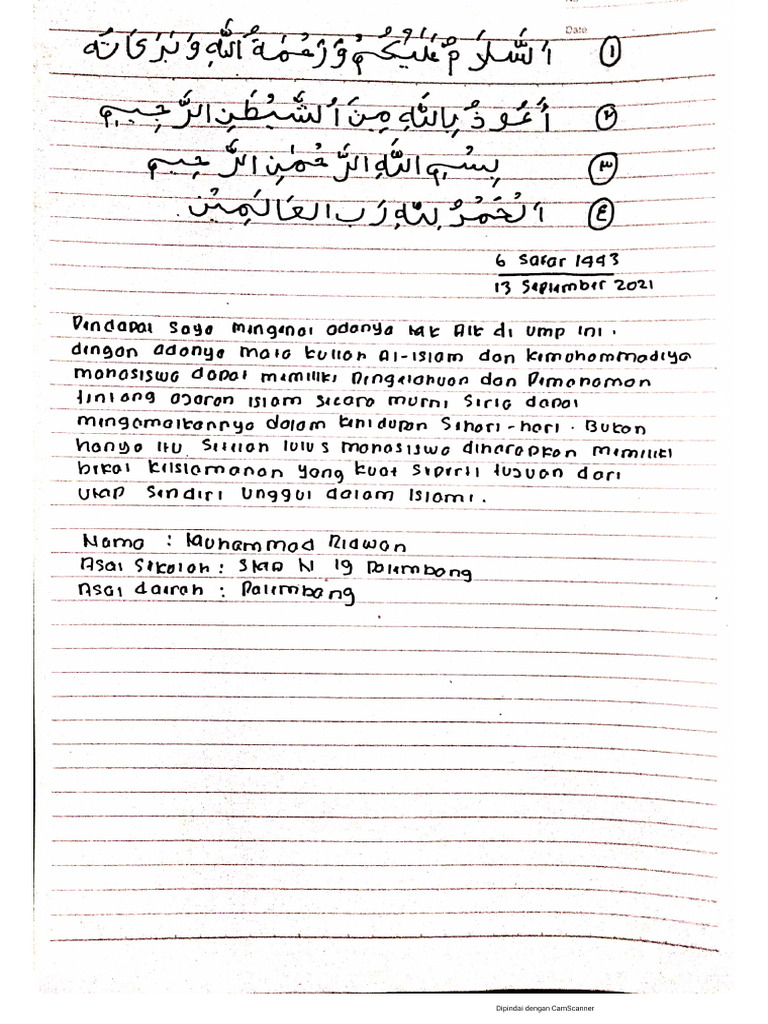 No
Date
١ اَلسَّلَامُ عَلَيْكُمْ وَرَحْمَةُ اللّٰهِ وَبَرَكَاتُه
٢ أَعُوذُ بِاللّٰهِ مِنَ الشَّيْطٰنِ الرَّجِيْمِ
٣ بِسْمِ اللّٰهِ الرَّحْمٰنِ الرَّحِيمِ
٤ اَلْحَمْدُ لِلّٰهِ رَبِ العَالَمِيْنَ.
6 Safar 1443
13 September 2021
Pendapat saya mengenai adanya MK AIK di UMP ini.
dengan adanya mata kuliah Al-Islam dan Kemuhammadiya
mahasiswa dapat memiliki Pengetahuan dan Pemahaman
tentang ajaran Islam secara murni serta dapat
mengamalkannya dalam kehidupan sehari-hari. Bukan
hanya itu setelah lulus mahasiswa diharapkan memiliki
bekal keislamanan yang kuat seperti tujuan dari
UMP sendiri unggul dalam Islami.
Nama : Muhammad Ridwan
Asal Sekolah : SMA N 19 Palembang
Asal daerah : Palembang
Dipindai dengan CamScanner